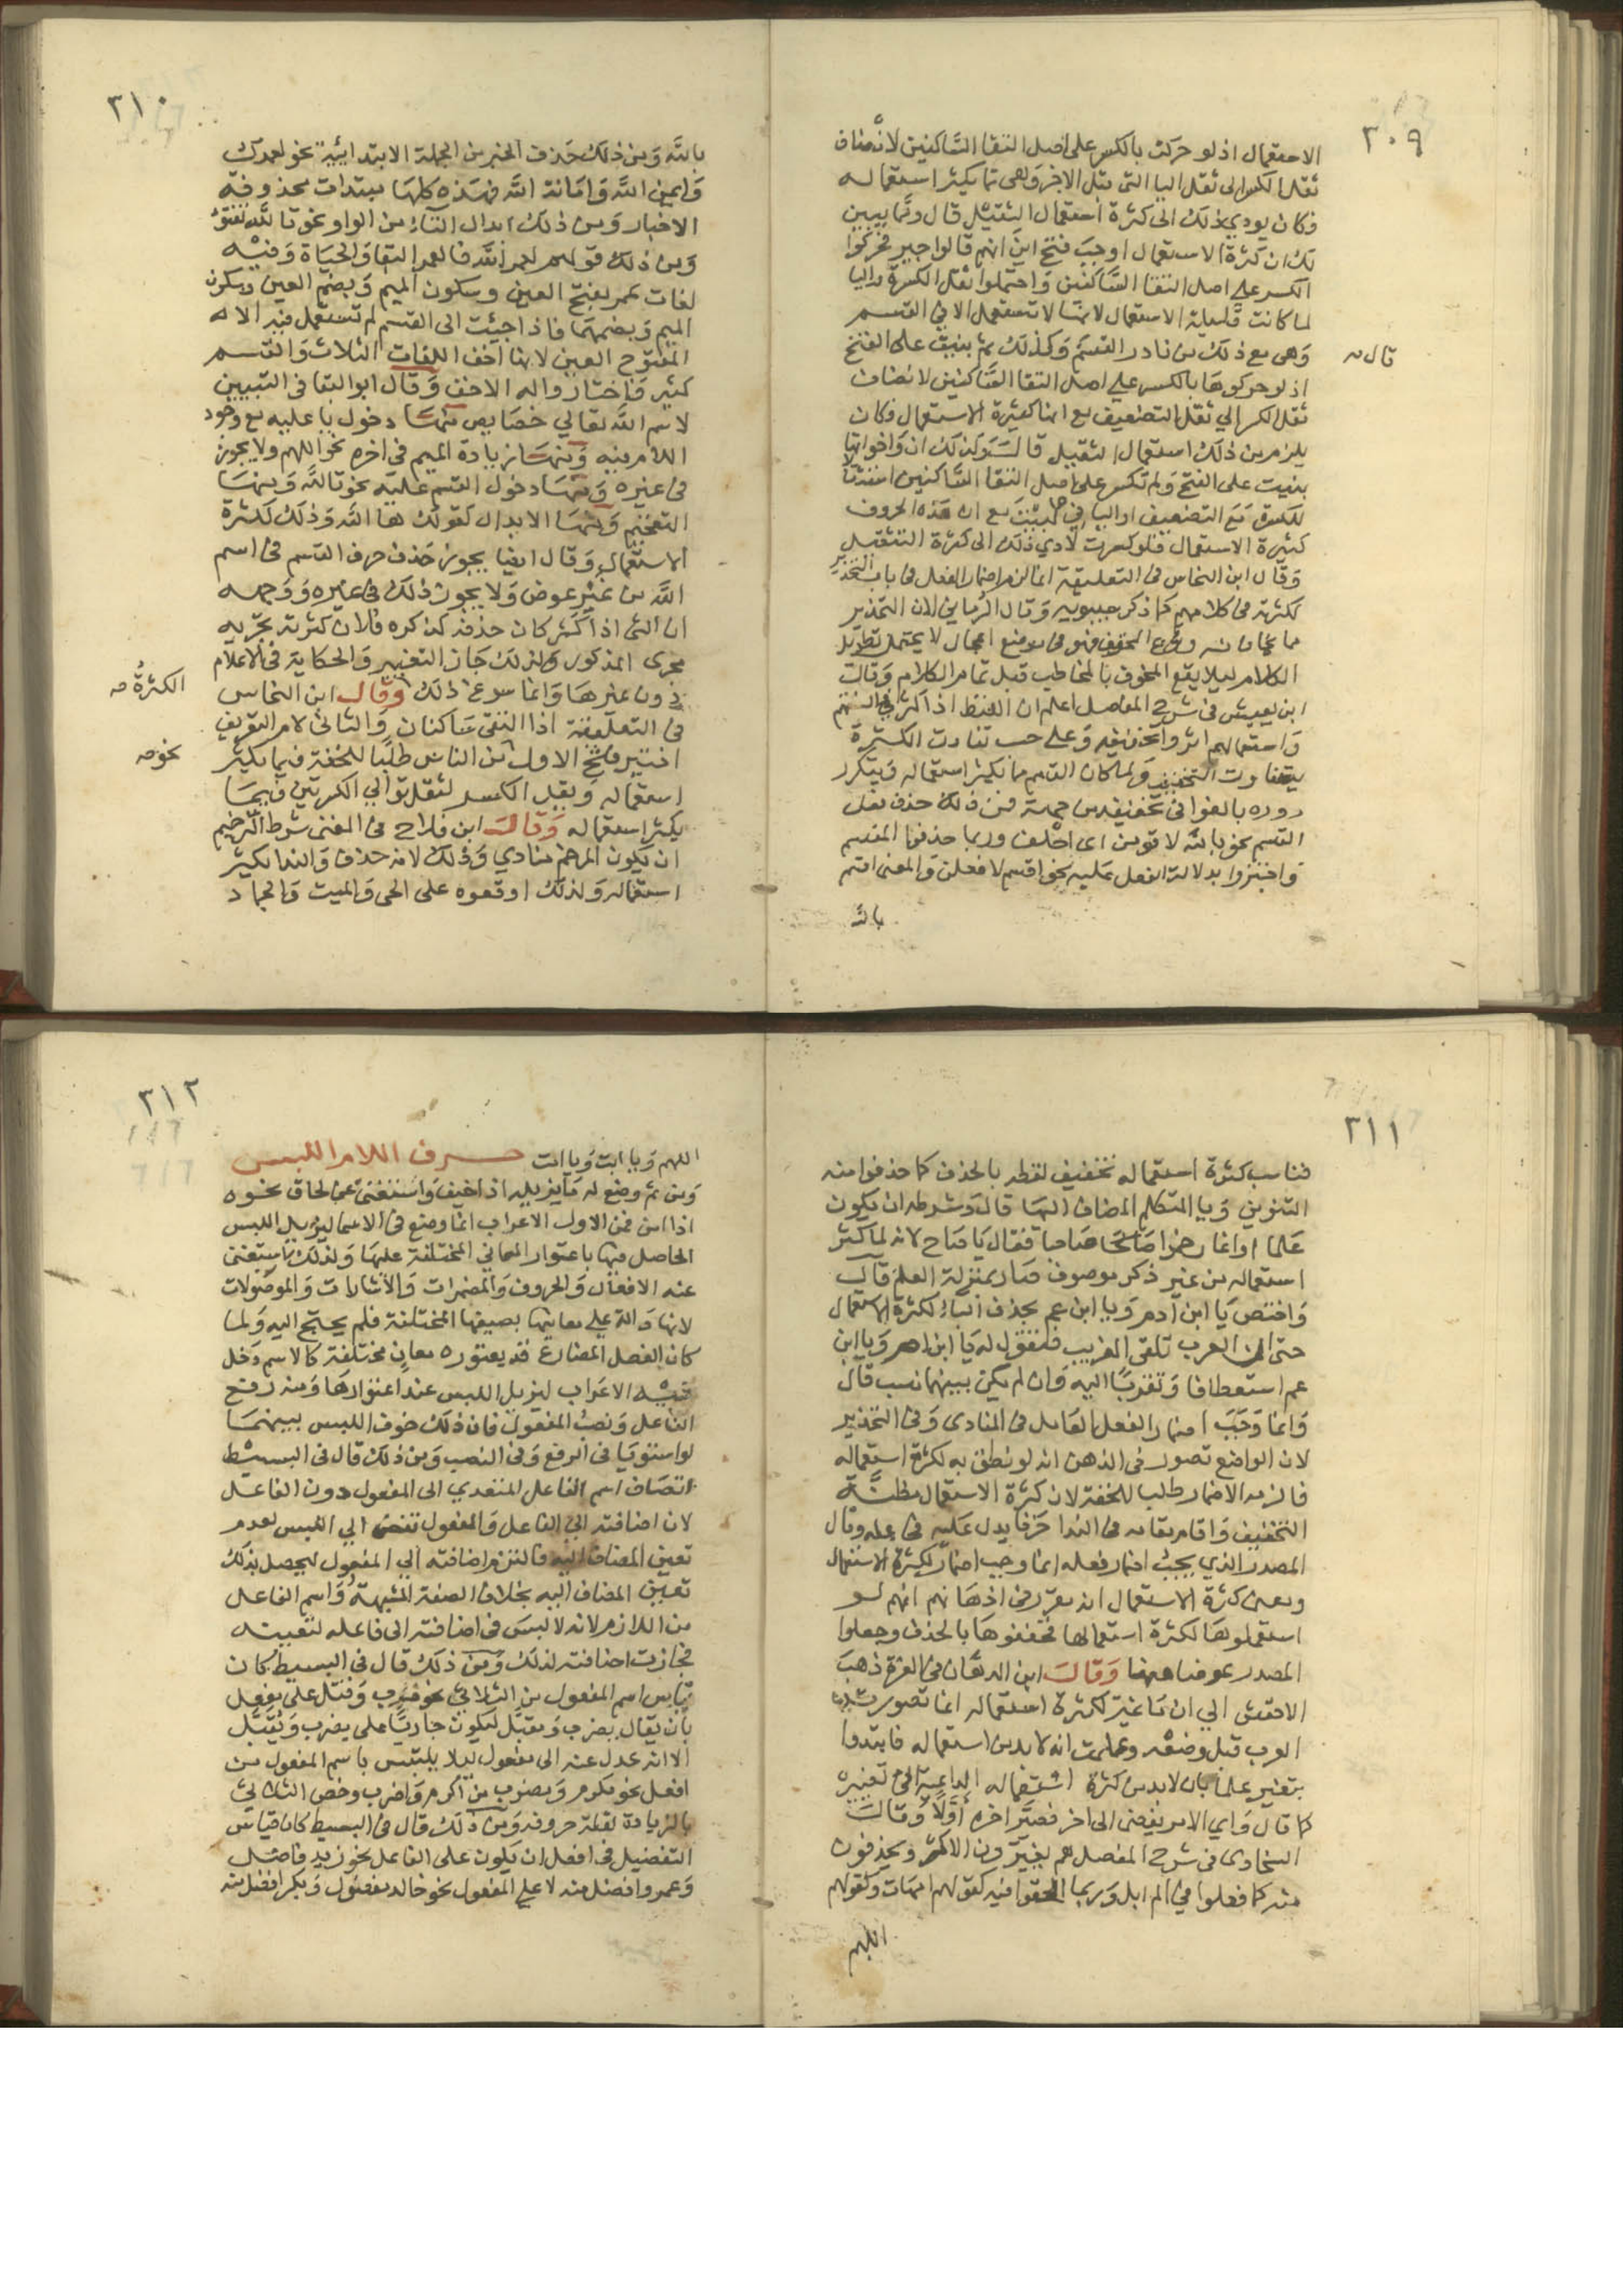 ٢٠٩
الاستعمال اذ لو حركت بالكسر على اصل التقا الساكنين لانضاف
ثقل الكسر الى ثقل اليا التى قبل الاخر وهى مما يكثر استعماله
فكان يودي ذلك الى كثرة استعمال الثقيل قال ومما يبين
لك ان كثرة الاستعمال اوجبت فتح اين انهم قالوا جير فحركوا
الكسر على اصل التقا الساكنين واحتملوا ثقل الكسرة واليا
لما كانت قليلة الاستعمال لانها لا تستعمل الا فى القسم
وهى مع ذلك من نادر القسم وكذلك ثم بنيت على الفتح
قال
اذ لو حركوها بالكسر على اصل التقا الساكنين لانضاف
ثقل الكسر الي ثقل التضعيف مع انها كثيرة الاستعمال فكان
يلزم من ذلك استعمال الثقيل قال وكذلك ان واخواتها
بنيت على الفتح ولم تكسر على اصل التقا الساكنين استثقالا
للكسرة مع التضعيف او اليا فى ليت مع ان هذه الحروف
كثيرة الاستعمال فلو كسرت لادي ذلك الى كثرة الثقيل
وقال ابن النحاس فى التعليقة انما لزم اضمار الفعل فى باب التحذير
لكثرته فى كلامهم كما ذكر سيبويه وقال الرماني لان التحذير
مما يخاف منه وقوع المخوف فهو فى موضع اعجال لا يحتمل تطويل
الكلام ليلا يقع المخوف بالمخاطب قبل تمام الكلام وقال
ابن يعيش فى شرح المفصل اعلم ان اللفظ اذا كثر فى السنتهم
واستعمالهم اثروا تخفيفه وعلى حسب تفاوت الكثرة
يتفاوت التخفيف ولما كان القسم مما يكثر استعماله ويتكرر
دوره بالغوا فى تخفيفه من جهة فمن ذلك حذف فعل
القسم نحو بالله لاقومن اى احلف وربما حذفوا المقسم
واجتزوا بدلالة الفعل عليه نحو اقسم لافعلن والمعنى اقسم
بالله
٢١٠
بالله ومن ذلك حذف الخبر من الجملة الابتدائية نحو لعمرك
وايمن الله وامانة الله فهذه كلها مبتدات محذوفة
الاخبار ومن ذلك ابدال التاء من الواو نحو تالله تفتؤ
ومن ذلك قولهم لعمر الله فالعمر البقا والحياة وفيه
لغات عمر بفتح العين وسكون الميم وبضم العين وسكون
الميم وبضمهما فاذا جيئت الى القسم لم تستعمل فيه الا
المفتوح العين لانها اخف اللغات الثلاث والقسم
كثير فاختاروا له الاخف وقال ابو البقا فى التبيين
لاسم الله تعالي خصايص منها دخول يا عليه مع وجود
اللام فيه ومنها زيادة الميم فى اخره نحو اللهم ولا يجوز
فى غيره ومنها دخول القسم عليه نحو تالله ومنها
التفخيم ومنها الابدال كقولك ها الله وذلك لكثرة
الاستعمال وقال ايضا يجوز حذف حرف القسم فى اسم
الله من غير عوض ولا يجوز ذلك فى غيره ووجهه
ان الشى اذا كثر كان حذفه كذكره فلان كثرته تجريه
مجرى المذكور ولذلك جاز التغيير والحكاية فى الاعلام
دون غيرها وانما سوغ ذلك وقال ابن النحاس
الكثرة صح
فى التعليقة اذا التقى ساكنان والثانى لام التعريف
اختير فتح الاول نحو من الناس طلبا للخفة فيما يكثر
نحو صح
استعماله ويقل الكسر لثقل توالي الكسرتين فيما
يكثر استعماله وقال ابن فلاح فى المغنى شرط الترخيم
ان يكون المرخم منادي وذلك لانه حذف والندا يكثر
استعماله ولذلك اوقعوه على الحى والميت والجماد
٢١١
فناسب كثرة استعماله تخفيف لفظه بالحذف كما حذفوا منه
التنوين ويا المتكلم المضاف اليها قال وشرطه ان يكون
علما وانما رخموا صاحبا فقال يا صاح لانه لما كثر
استعماله من غير ذكر موصوف صار بمنزلة العلم قال
واختص يا ابن ادم ويا ابن عم بحذف الياء لكثرة الاستعمال
حتى ان العرب تلقى الغريب فتقول له يا ابن ام ويا ابن
عم استعطافا وتقربا اليه وان لم يكن بينهما نسب قال
وانما وجب اضمار الفعل العامل فى المنادى وفى التحذير
لان الواضع تصور فى الذهن انه لو نطق به لكثرة استعماله
فالزمه الاضمار طلبا للخفة لان كثرة الاستعمال مظنة
التخفيف واقام مقامه فى الندا حرفا يدل عليه فى محله وقال
المصدر الذي يجب اضمار فعله انما وجب اضماره لكثرة الاستعمال
ومعنى كثرة الاستعمال انه تقرر فى اذهانهم انهم لو
استعملوها لكثرة استعمالها فخففوها بالحذف وجعلوا
المصدر عوضا منها وقال ابن الدهان فى الغرة ذهب
الاخفش الي ان ما غير لكثرة استعماله انما تصورته
العرب قبل وضعه وعلمت انه لابد من استعماله فابتدوا
بتغييره علما بان لابد من كثرة استعماله الداعية الى تغييره
كما قال واي الامر يفضى الى اخر فصير اخره اولا وقال
السخاوى فى شرح المفصل هم يغيرون الاكثر ويحذفون
منه كما فعلوا فى لم ابل وربما الحقوا فيه كقولهم امهات وكقولهم
اللهم
٢١٢
اللهم ويا ابت ويا امت حرف اللام اللبس
ومن ثم وضع له ما يزيله اذا خيف واستغنى عن لحاق نحوه
اذا امن فمن الاول الاعراب انما وضع فى الاسما ليزيل اللبس
الحاصل فيها باعتوار المعاني المختلفة عليها ولذلك استغنى
عنه الافعال والحروف والمضمرات والاشارات والموصولات
لانها دالة على معانيها بصيغها المختلفة فلم يحتج اليه ولما
كان الفعل المضارع قد يعتوره معان مختلفة كالاسم دخل
فيه الاعراب ليزيل اللبس عند اعتوارها ومنه رفع
الفاعل ونصب المفعول فان ذلك خوف اللبس بينهما
لو استويا فى الرفع وفى النصب ومن ذلك قال فى البسيط
اتصاف اسم الفاعل المتعدي الى المفعول دون الفاعل
لان اضافته الي الفاعل والمفعول تفضى الي اللبس لعدم
تعين المضاف اليه فالتزم اضافته الي المفعول ليحصل بذلك
تعيين المضاف اليه بخلاف الصفة المشبهة واسم الفاعل
من اللازم لانه لا لبس فى اضافته الى فاعله لتعينه
فجازت اضافته لذلك ومن ذلك قال فى البسيط كان
قياس اسم المفعول من الثلاثى نحو ضرب وقتل على يفعل
بان يقال يضرب ويقتل ليكون جاريا على يضرب ويقتل
الا انه عدل عنه الى مفعول ليلا يلتبس باسم المفعول من
افعل نحو مكرم ومضرب من اكرم واضرب وخص الثلاثي
بالزيادة لقلة حروفه ومن ذلك قال فى البسيط كان قياس
التفضيل فى افعل ان يكون على الفاعل نحو زيد فاضل
وعمرو افضل منه لا على المفعول نحو خالد مفضول وبكر افضل منه